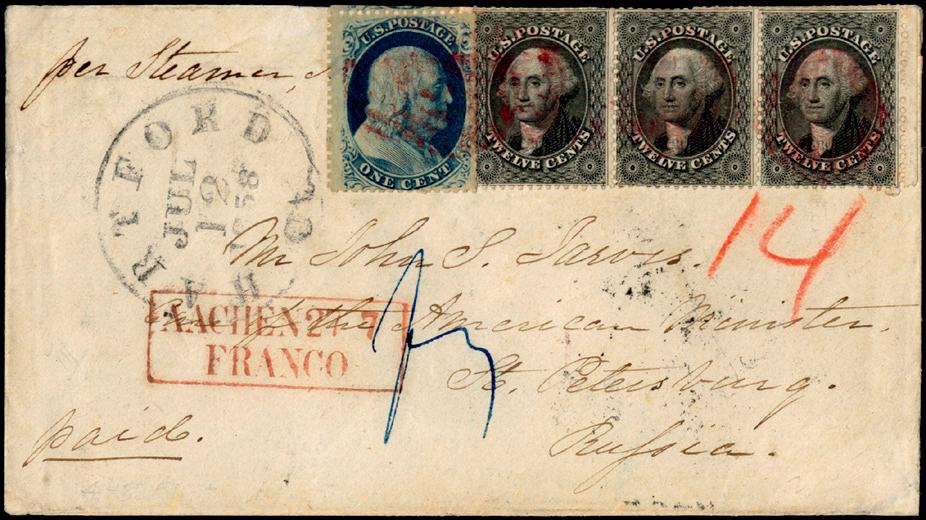 per Steamer
U.S. POSTAGE
ONE CENT
U.S. POSTAGE
TWELVE CENTS
U.S. POSTAGE
TWELVE CENTS
U.S. POSTAGE
TWELVE CENTS
HARTFORD
JUL
12
1858
14
Mr John S. Jarvis.
Care of the American Minister.
St. Petersburg.
Russia.
AACHEN 27 7
FRANCO
paid.